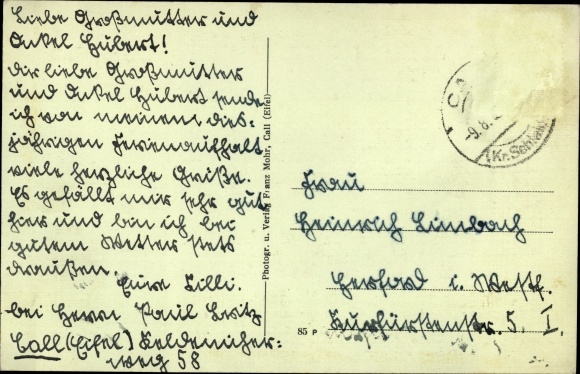 Liebe Großmutter und
Onkel Hubert!
Dir liebe Großmutter
und Onkel Hubert sende
ich von meinem dies-
jährigen Ferienaufhalt
viele herzliche Grüße.
Es gefällt mir sehr gut
hier und bin ich bei
gutem Wetter stets
draußen.
Eure Lilli.
bei Herrn Paul
Call (Eifel) Keldenicher-
weg 58
Photogr. u. Verlag Franz Mohr, Call (Eifel)
-9.8.
(Kr. Schleid
Frau
Heinrich Limbach
Herford i. Westf.
Kurfürstenstr. 5. I.
85 P